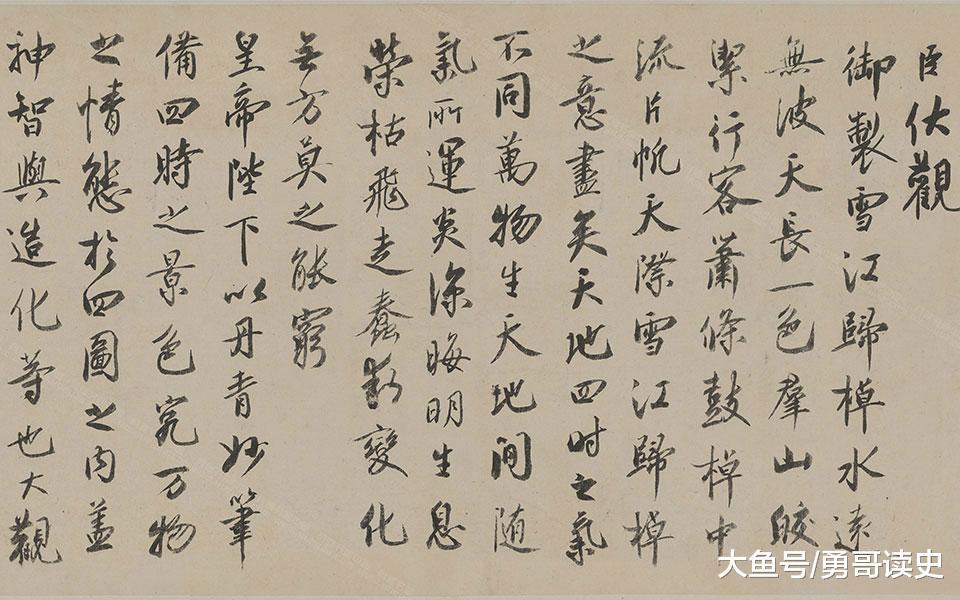 臣伏觀
御製雪江歸棹水遠
無波天長一色羣山皎
潔行客蕭條鼓棹中
流片帆天際雪江歸棹
之意盡矣天地四时之氣
不同萬物生天地間随
氣所運炎涼晦明生息
榮枯飛走蠢動變化
無方莫之能窮
皇帝陛下以丹青妙筆
備四時之景色究万物
之情態於四圖之内盖
神智與造化等也大觀
大鱼号/勇哥读史